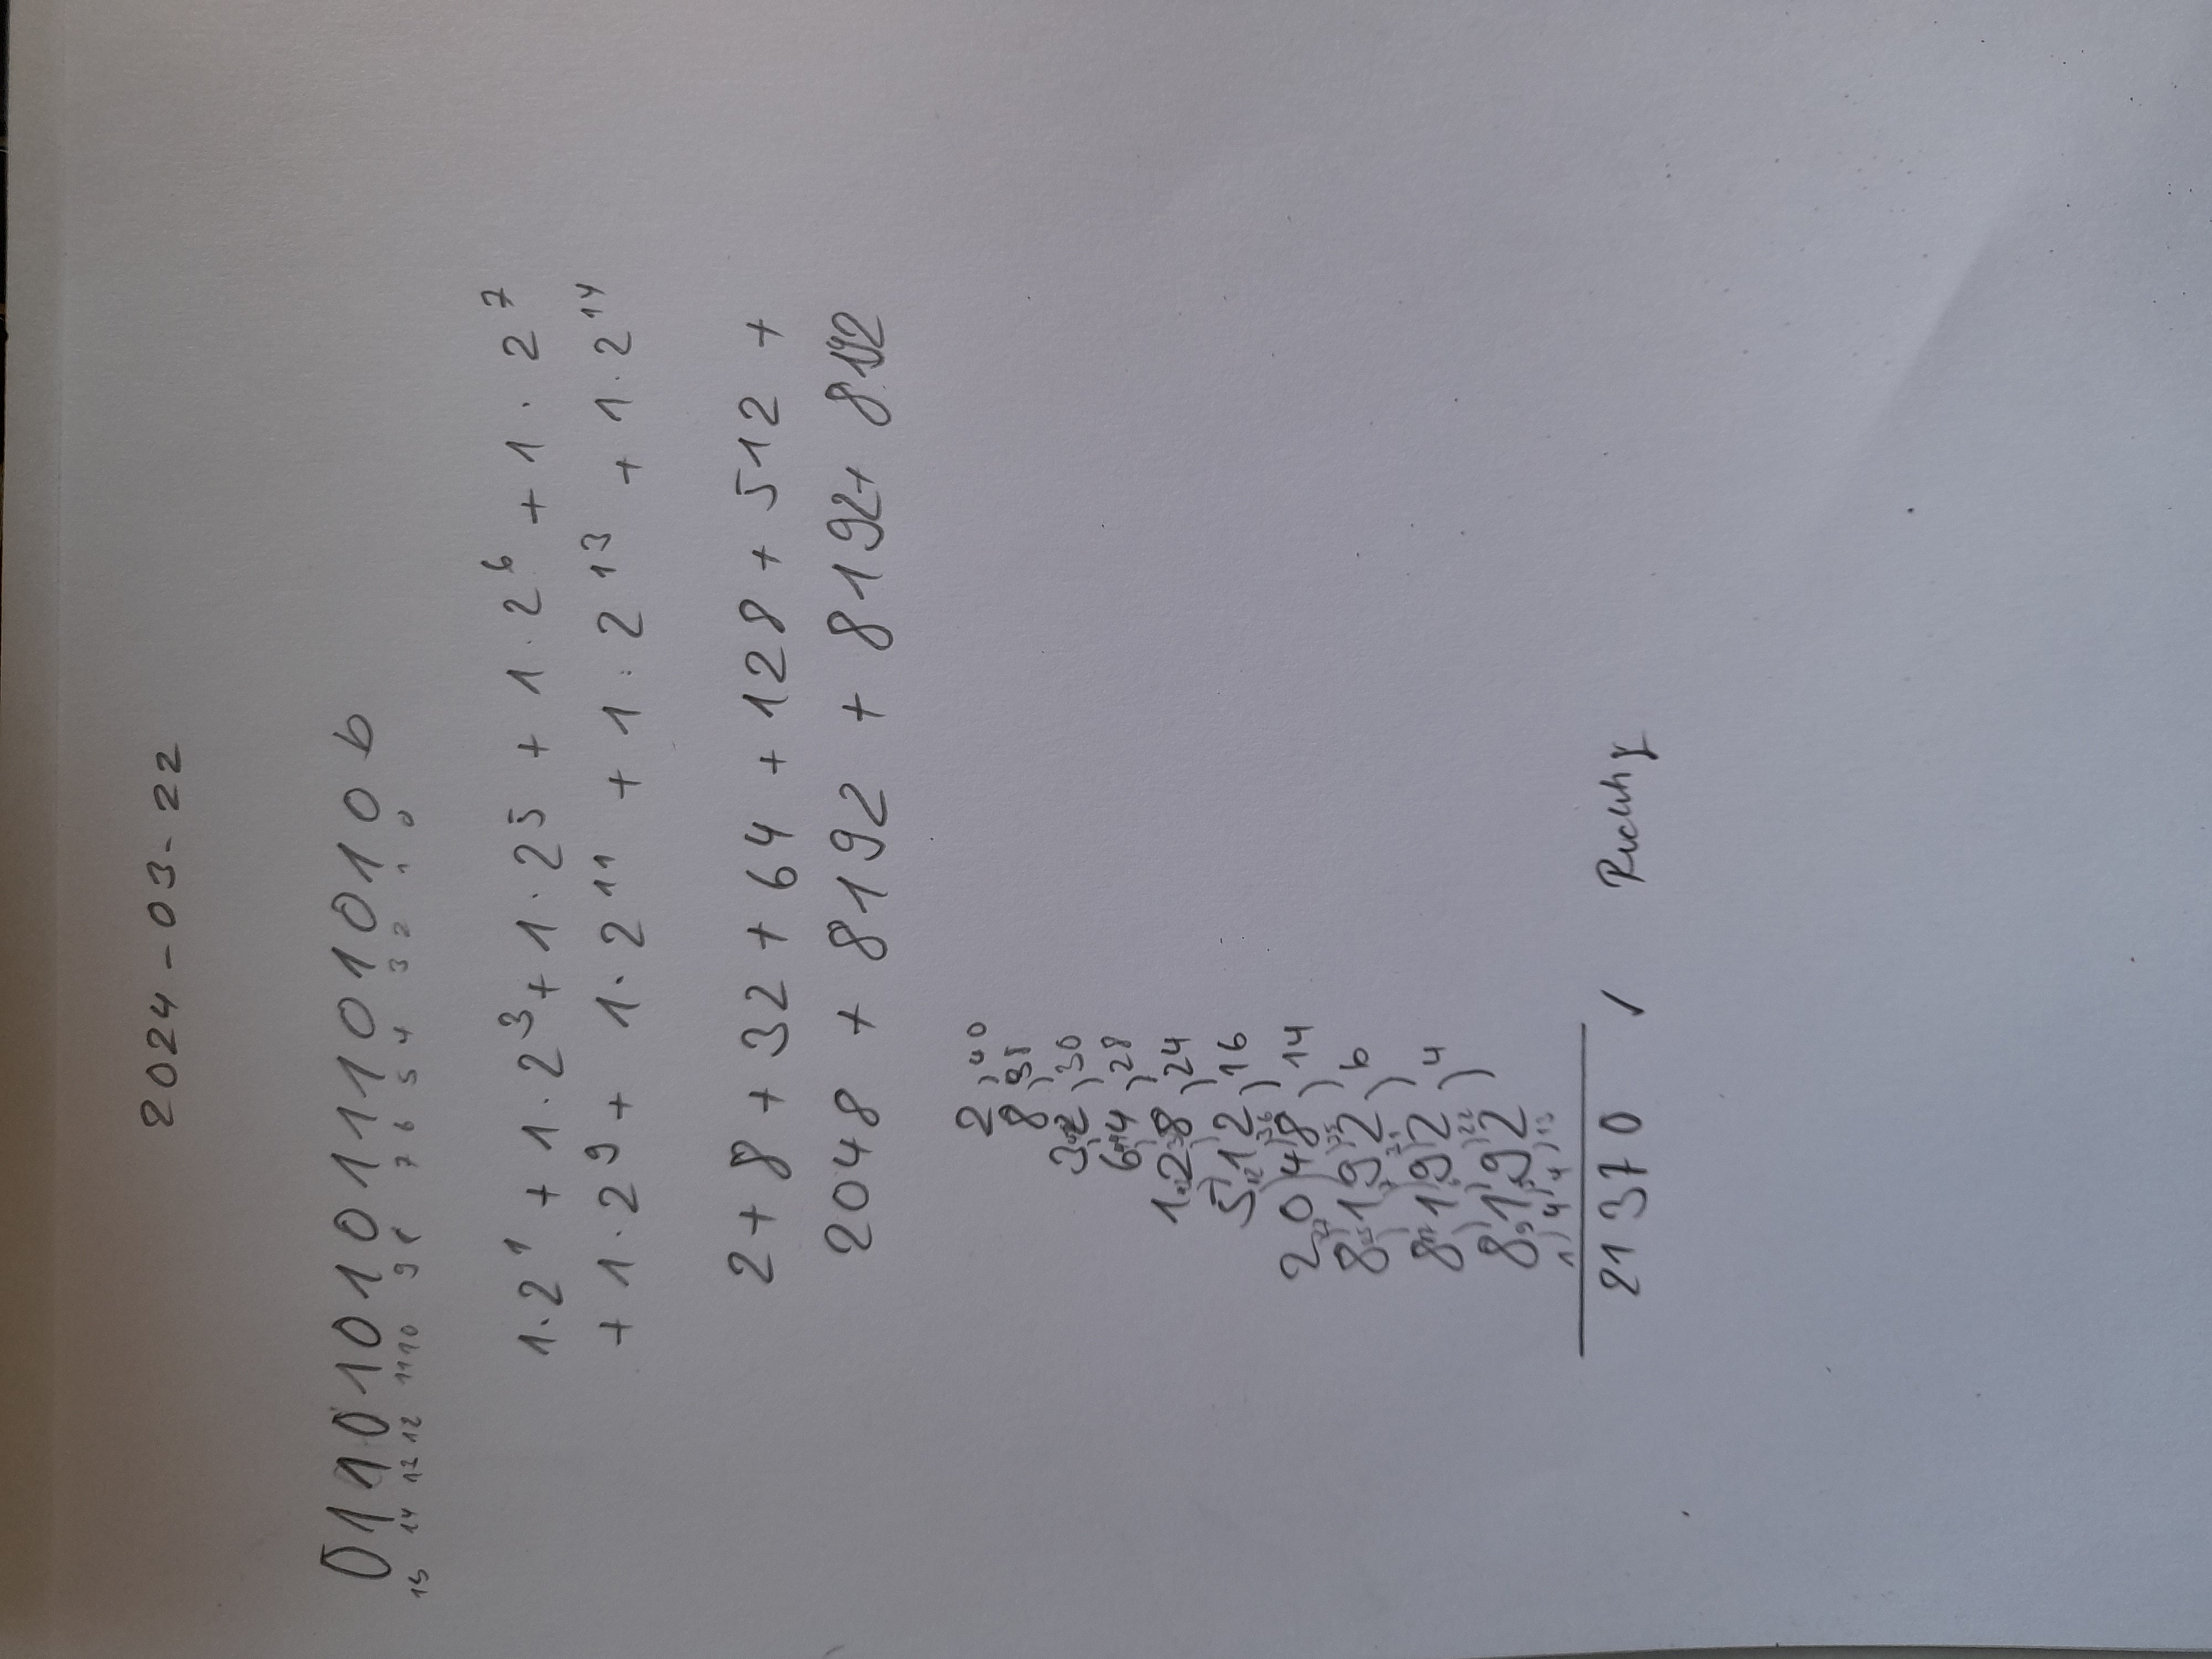 2024-03-22
0110101011101010 b
15 14 13 12 11 10 9 8 7 6 5 4 3 2 1 0
1·2¹ + 1·2³ + 1·2⁵ + 1·2⁶ + 1·2⁷
+ 1·2⁹ + 1·2¹¹ + 1·2¹³ + 1·2¹⁴
2 + 8 + 32 + 64 + 128 + 512 +
2048 + 8192 + 8192 + 8192
2 ) 40
8 ) 35
32 ) 30
64 ) 28
128 ) 24
512 ) 16
2048 ) 14
8192 ) 6
8192 ) 4
8192
1 4 4 13
21370 ✓ Richtig